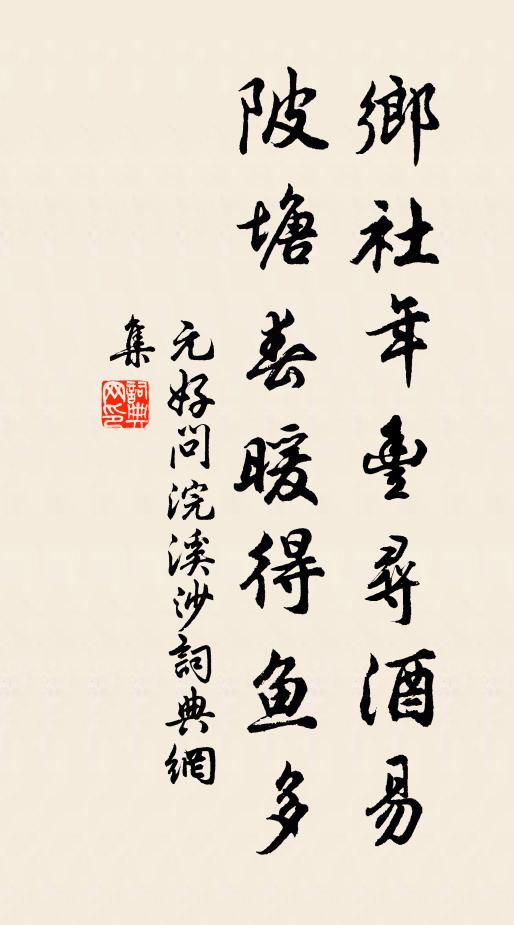 鄉社年豐尋酒易
陂塘春暖得鱼多
元好问浣溪沙詞典網
集
詞典网印